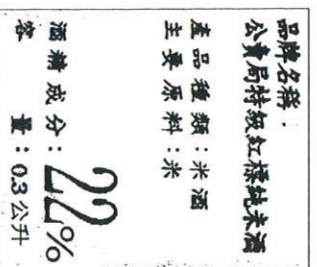 品牌名稱：
公賣局特級紅標純米酒
產品種類：米酒
主要原料：米
酒精成分：22%
容量：0.3公升